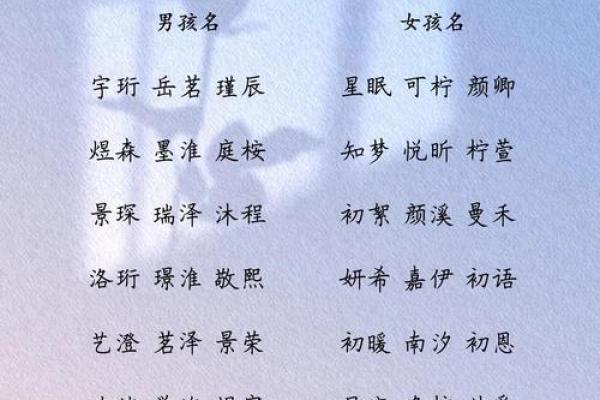 男孩名 女孩名
宇珩 岳茗 瑾辰 星眠 可柠 颜卿
煜森 墨淮 庭桉 知梦 悦昕 柠萱
景琛 瑞泽 沐程 初絮 颜溪 曼禾
洛珩 璟淮 敬熙 妍希 嘉伊 初语
艺澄 茗泽 景荣 初暖 南汐 初恩